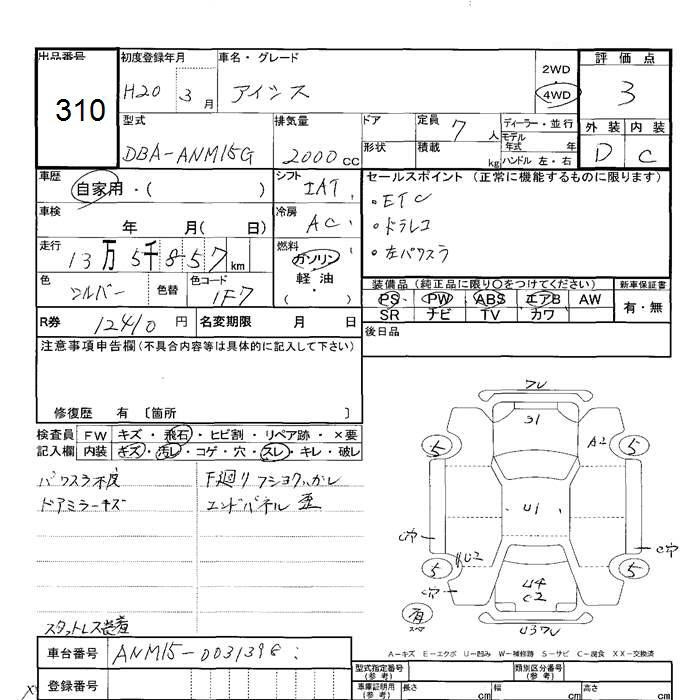 出品番号
310
初度登録年月
H20 3月
車名・グレード
アイシス
2WD
4WD
評価点
3
外装 内装
D C
型式
DBA-ANM15G
排気量
2000cc
ドア
形状
定員 7人
積載 kg
ディーラー・並行
モデル年式 年
ハンドル 左・右
車歴
自家用・( )
シフト
IAT
セールスポイント (正常に機能するものに限ります)
・ETC
・ドラレコ
・左パワスラ
車検 年 月( 日)
冷房
AC
走行
13万5千857km
燃料
ガソリン
軽油
( ・ )
色
シルバー
色替
色コード
1F7
装備品 (純正品に限り〇をつけてください)
PS PW ABS エアB AW
SR ナビ TV カワ
新車保証書
有・無
R券 12410円
名変期限 月 日
後日品
注意事項申告欄(不具合内容等は具体的に記入して下さい)
修復歴 有 〔箇所 〕
検査員 FW キズ・飛石・ヒビ割・リペア跡・×要
記入欄 内装 キズ・汚レ・コゲ・穴・スレ・キレ・破レ
F廻りフショクハガレ
ドアミラーキズ
エンドパネル歪
スタットレス装着
7U
31
A2
5
5
U1
C穴
C穴
U2
5
5
C穴
U4
C2
有
スペア
U37U
A－キズ E－エクボ U－凹み W－補修跡 S－サビ C－腐食 XX－交換済
車台番号
ANM15-0031398
登録番号
型式指定番号
(参考)
類別区分番号
(参考)
車庫証明用
(参考)
長さ cm
幅 cm
高さ cm